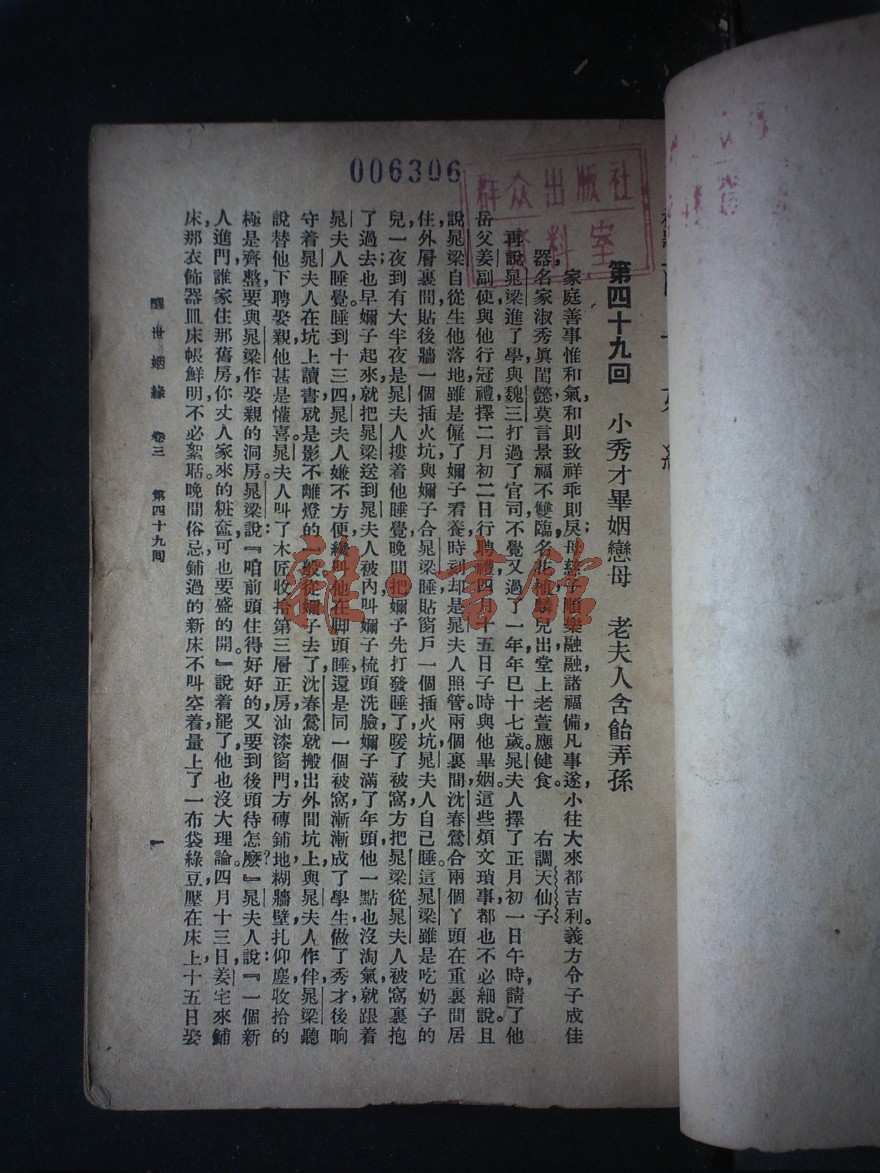 006306
群众出版社
资料室
第四十九回　小秀才畢姻戀母　老夫人含飴弄孫
家庭善事惟和氣，和則致祥乖則戾；母慈子順樂融融，諸福備，凡事遂，小往大來都吉利。義方令子成佳
器，名家淑秀眞閨懿。莫言景福不雙臨，名花植，麟兒出，堂上老萱應健食。　　右調天仙子
再說晁梁進了學，與魏三打過了官司，不覺又過了一年，年已十七歲。晁夫人擇了正月初一日午時，請了他
岳父姜副使與他行冠禮，擇二月初二日行聘禮，四月十五日子時與他畢姻。這些煩文瑣事，都也不必細說。且
說晁梁自從生他落地，雖是僱了嬭子看養，時刻却是晁夫人照管。兩個裏間，沈春鶯合兩個丫頭在重裏間居
住，外層裏間貼後牆一個插火坑，與嬭子合晁梁睡；貼窗戶一個插火坑，晁夫人自己睡。這晁梁雖是吃奶子的
兒，一夜到有大半夜是晁夫人摟着他睡覺，晚間把嬭子先打發睡了，暖了被窩，方把晁梁從晁夫人被窩裏抱
了過去；也早嬭子起來，就把晁梁送到晁夫人被內，叫嬭子梳頭洗臉。嬭子滿了年頭，他一點也沒淘氣，就跟着
晁夫人睡覺。睡到十三四，晁夫人嫌不方便，纔叫他在脚頭睡，還是同一個被窩。漸漸成了學生，做了秀才，後晌
守着晁夫人在坑上讀書，就是影不離燈的一般。從嬭子去了，沈春鶯就搬出外間坑上，與晁夫人作伴。晁梁聽
說替他下聘娶親，他甚是懽喜。晁夫人叫了木匠收拾第三層正房，油漆窗門，方磚鋪地，糊牆壁，扎仰塵，收拾的
極是齊整，要與晁梁作娶親的洞房。晁梁說：『咱前頭住得好好的，又要到後頭待怎麼？』晁夫人說：『一個新
人進門，誰家住那舊房？你丈人家來的粧奩，可也要盛的開。』說着罷了，他也沒大理論。四月十三日，姜宅來鋪
床，那衣飾器皿，床帳鮮明，不必絮聒。晚間俗忌鋪過的新床不叫空着，量上了一布袋綠豆壓在床上。十五日娶
醒世姻緣　卷三　第四十九回
一
雜·書館